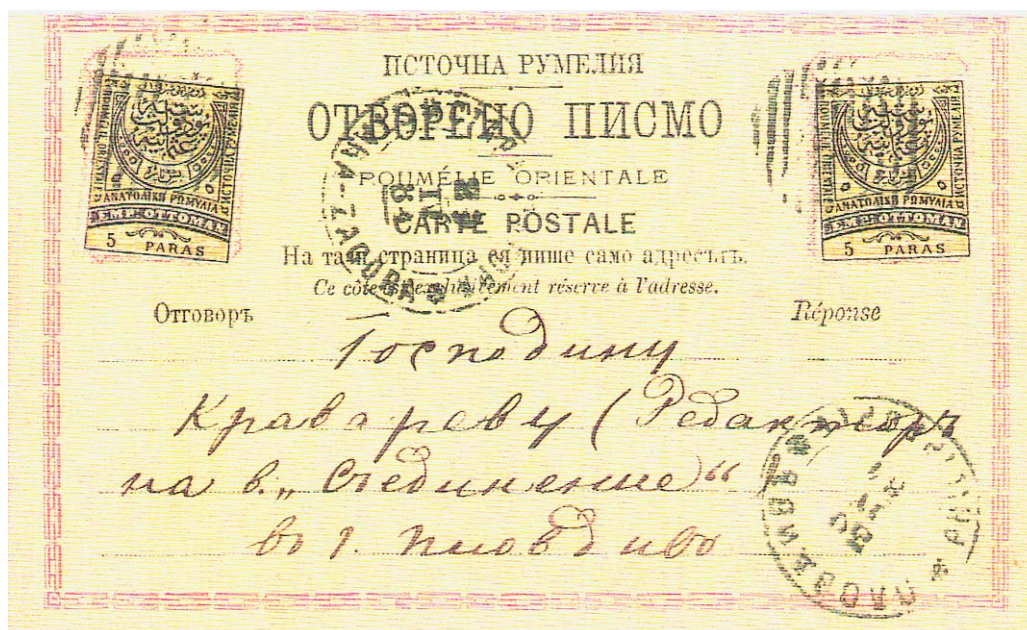 ИСТОЧНА РУМЕЛИЯ
ОТВОРЕНО ПИСМО
ROUMÉLIE ORIENTALE
CARTE POSTALE
На тази страница ся пише само адресътъ.
Ce côté est exclusivement réservé à l'adresse.
Отговоръ
Réponse
ΑΝΑΤΟΛΙΚΗ ΡΩΜΥΛΙΑ
EMP. OTTOMAN
5 PARAS
ΑΝΑΤΟΛΙΚΗ ΡΩΜΥΛΙΑ
EMP. OTTOMAN
5 PARAS
Господину
Краварову (Редакторъ
на в. „Съединение“
въ г. Пловдивъ
ZAGORA
ПЛОВДИВЪ